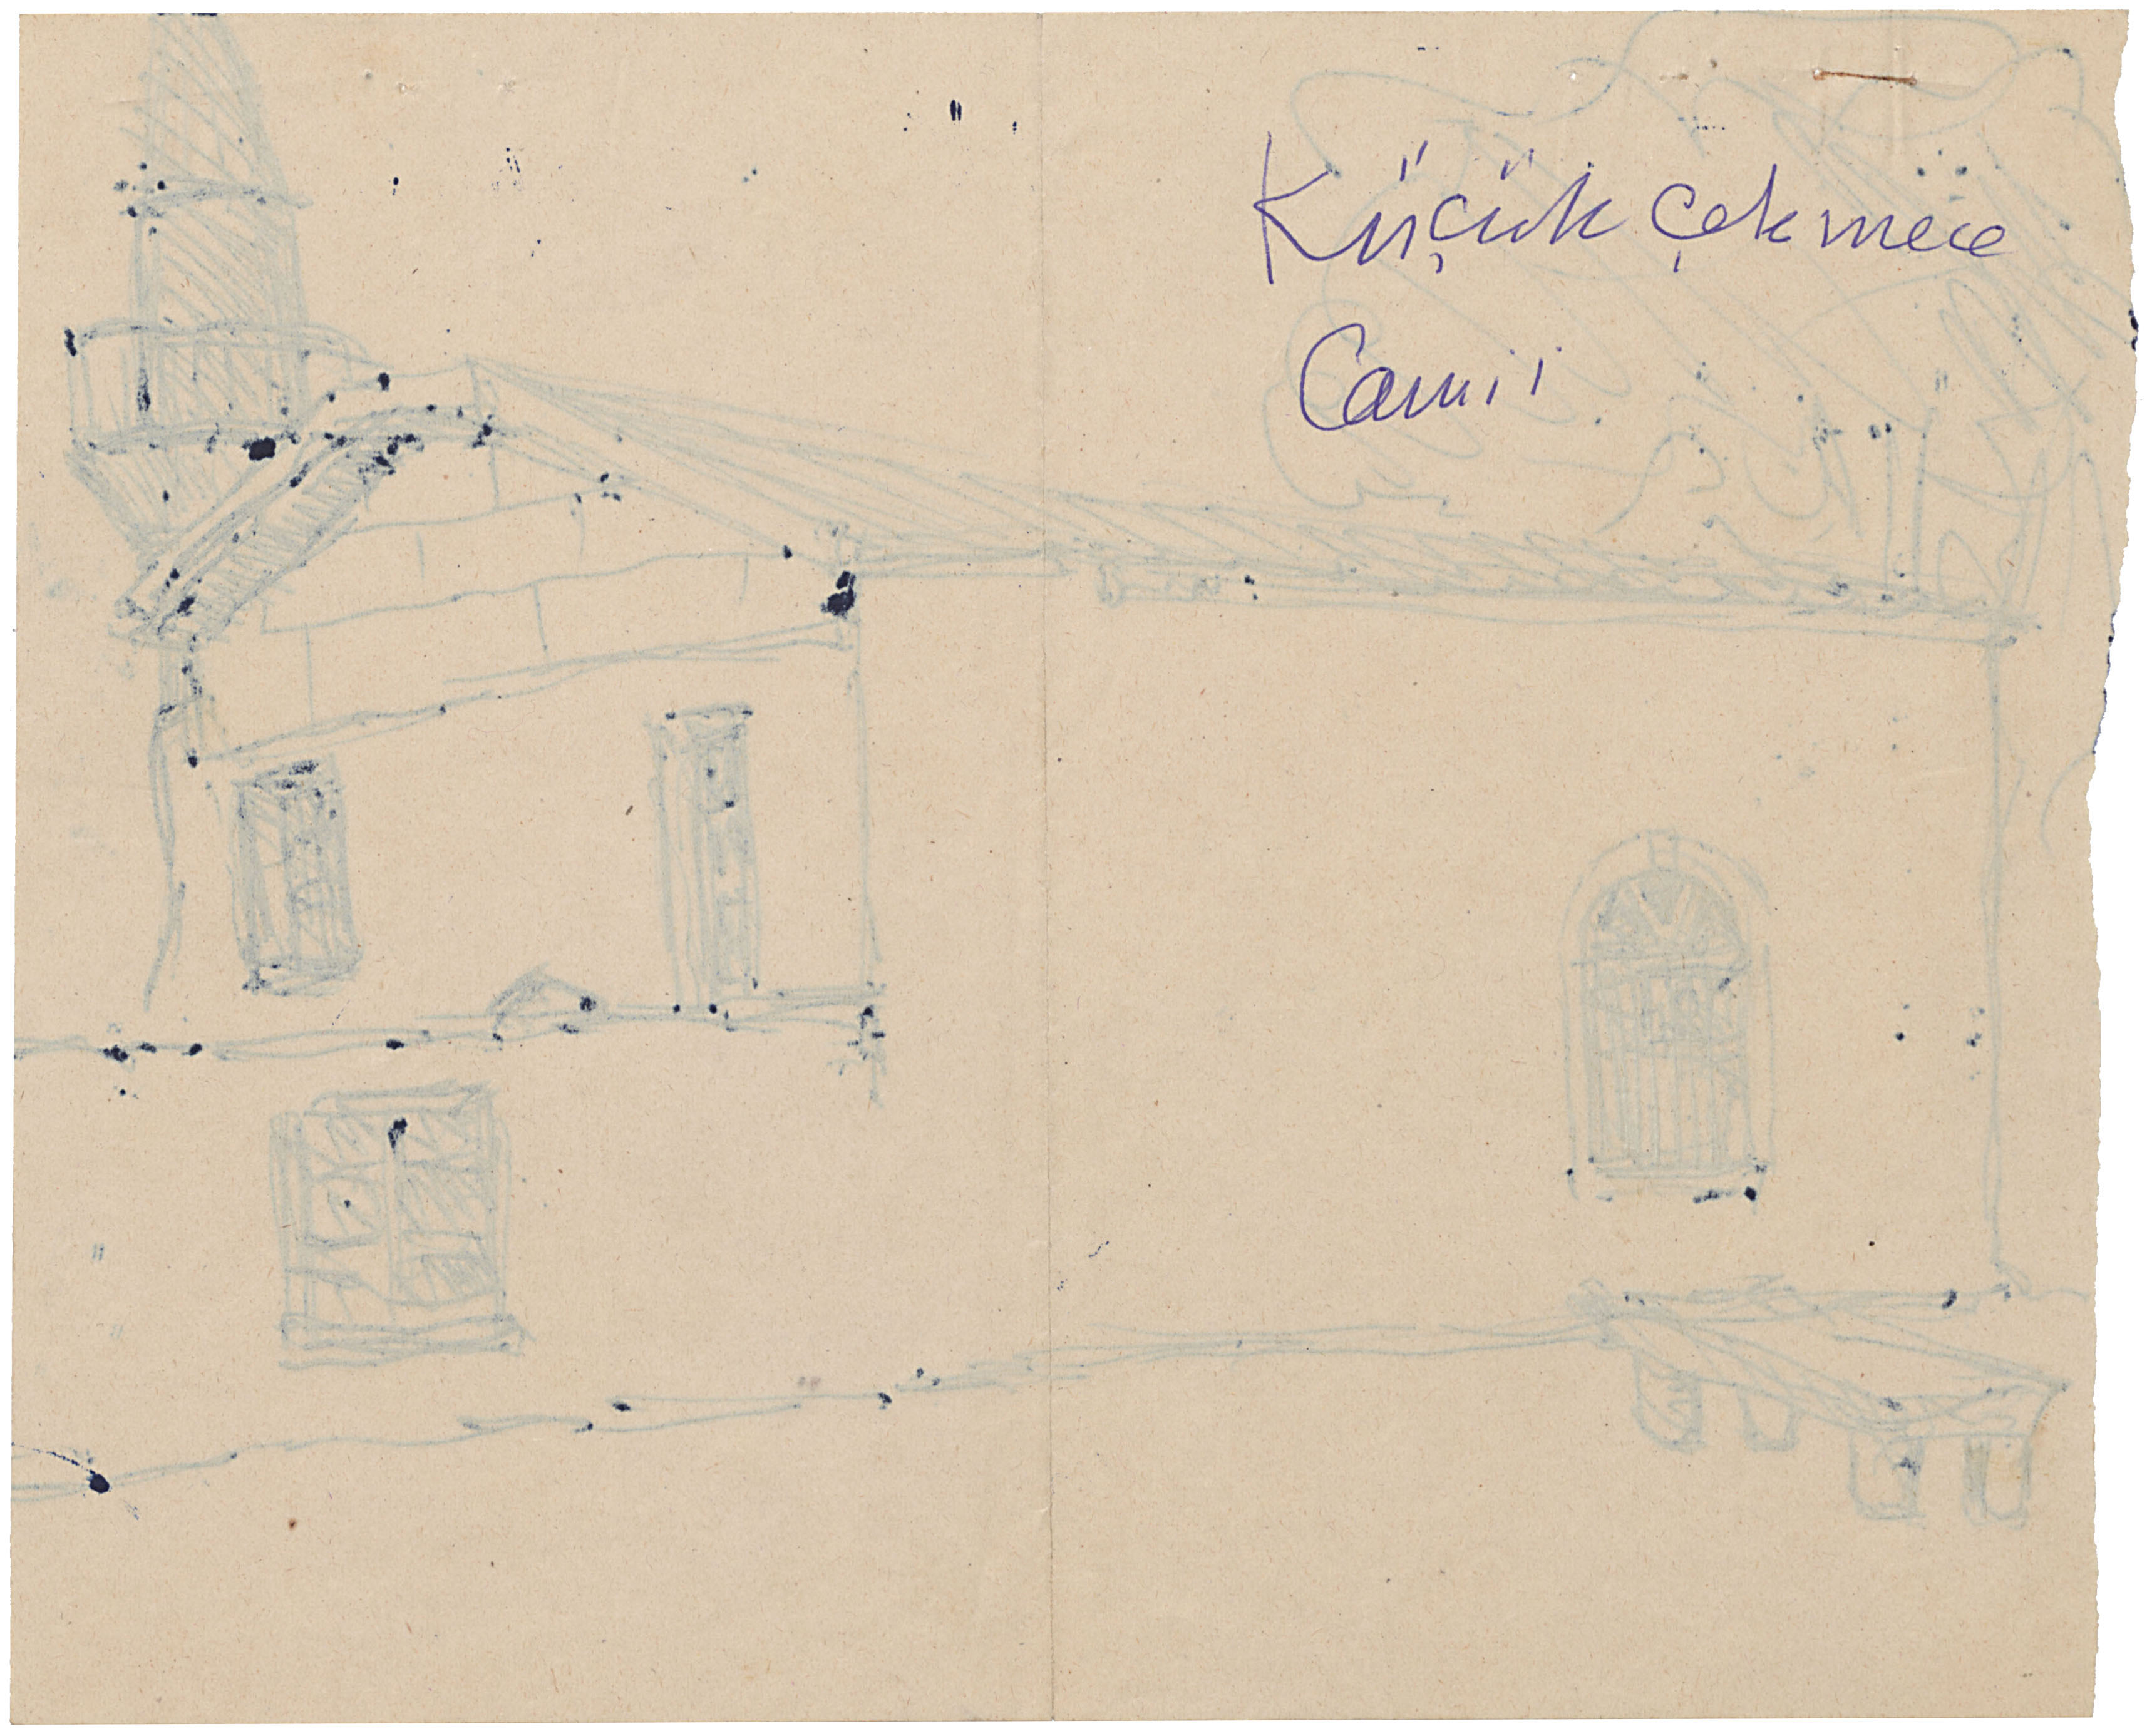 Küçük Çekmece
Camii